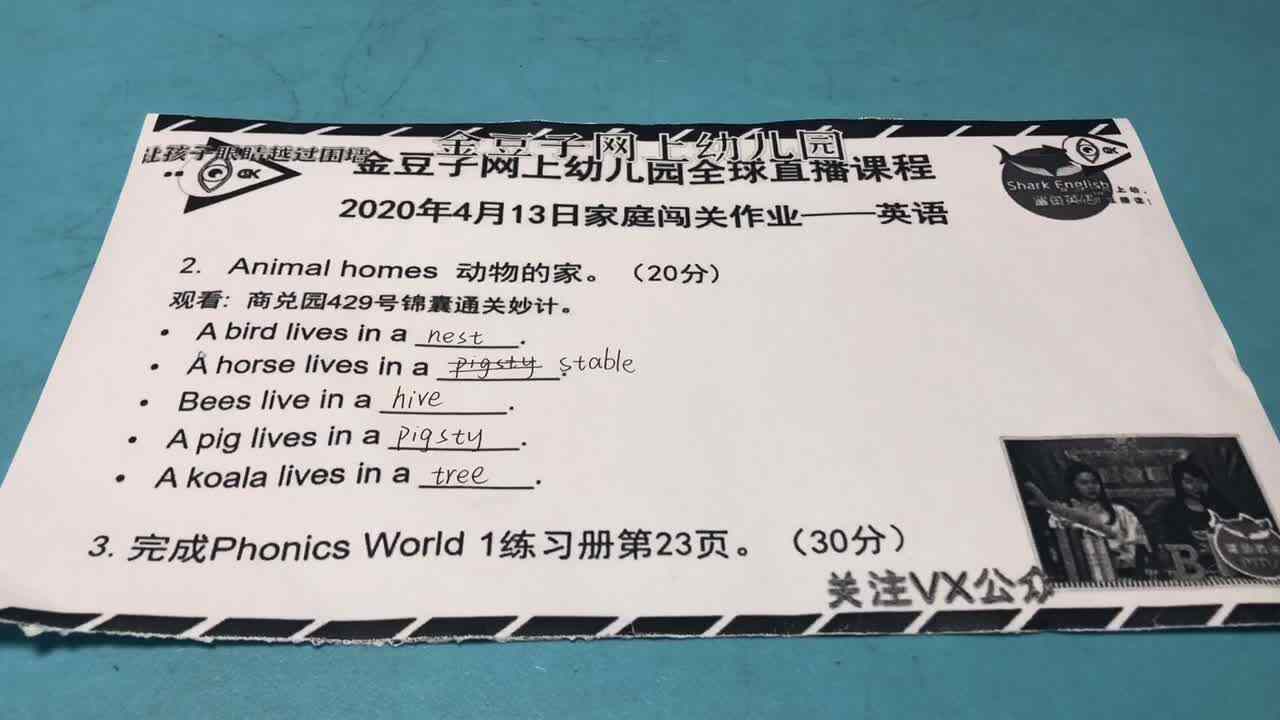 金豆子网上幼儿园
让孩子眼睛越过围墙
金豆子网上幼儿园全球直播课程
GK
GK
Shark English
鲨鱼英语
2020年4月13日家庭闯关作业——英语
2. Animal homes 动物的家。（20分）
观看：商兑园429号锦囊通关妙计。
• A bird lives in a nest.
• A horse lives in a pigsty. stable
• Bees live in a hive.
• A pig lives in a pigsty.
• A koala lives in a tree.
3. 完成Phonics World 1练习册第23页。（30分）
关注VX公众